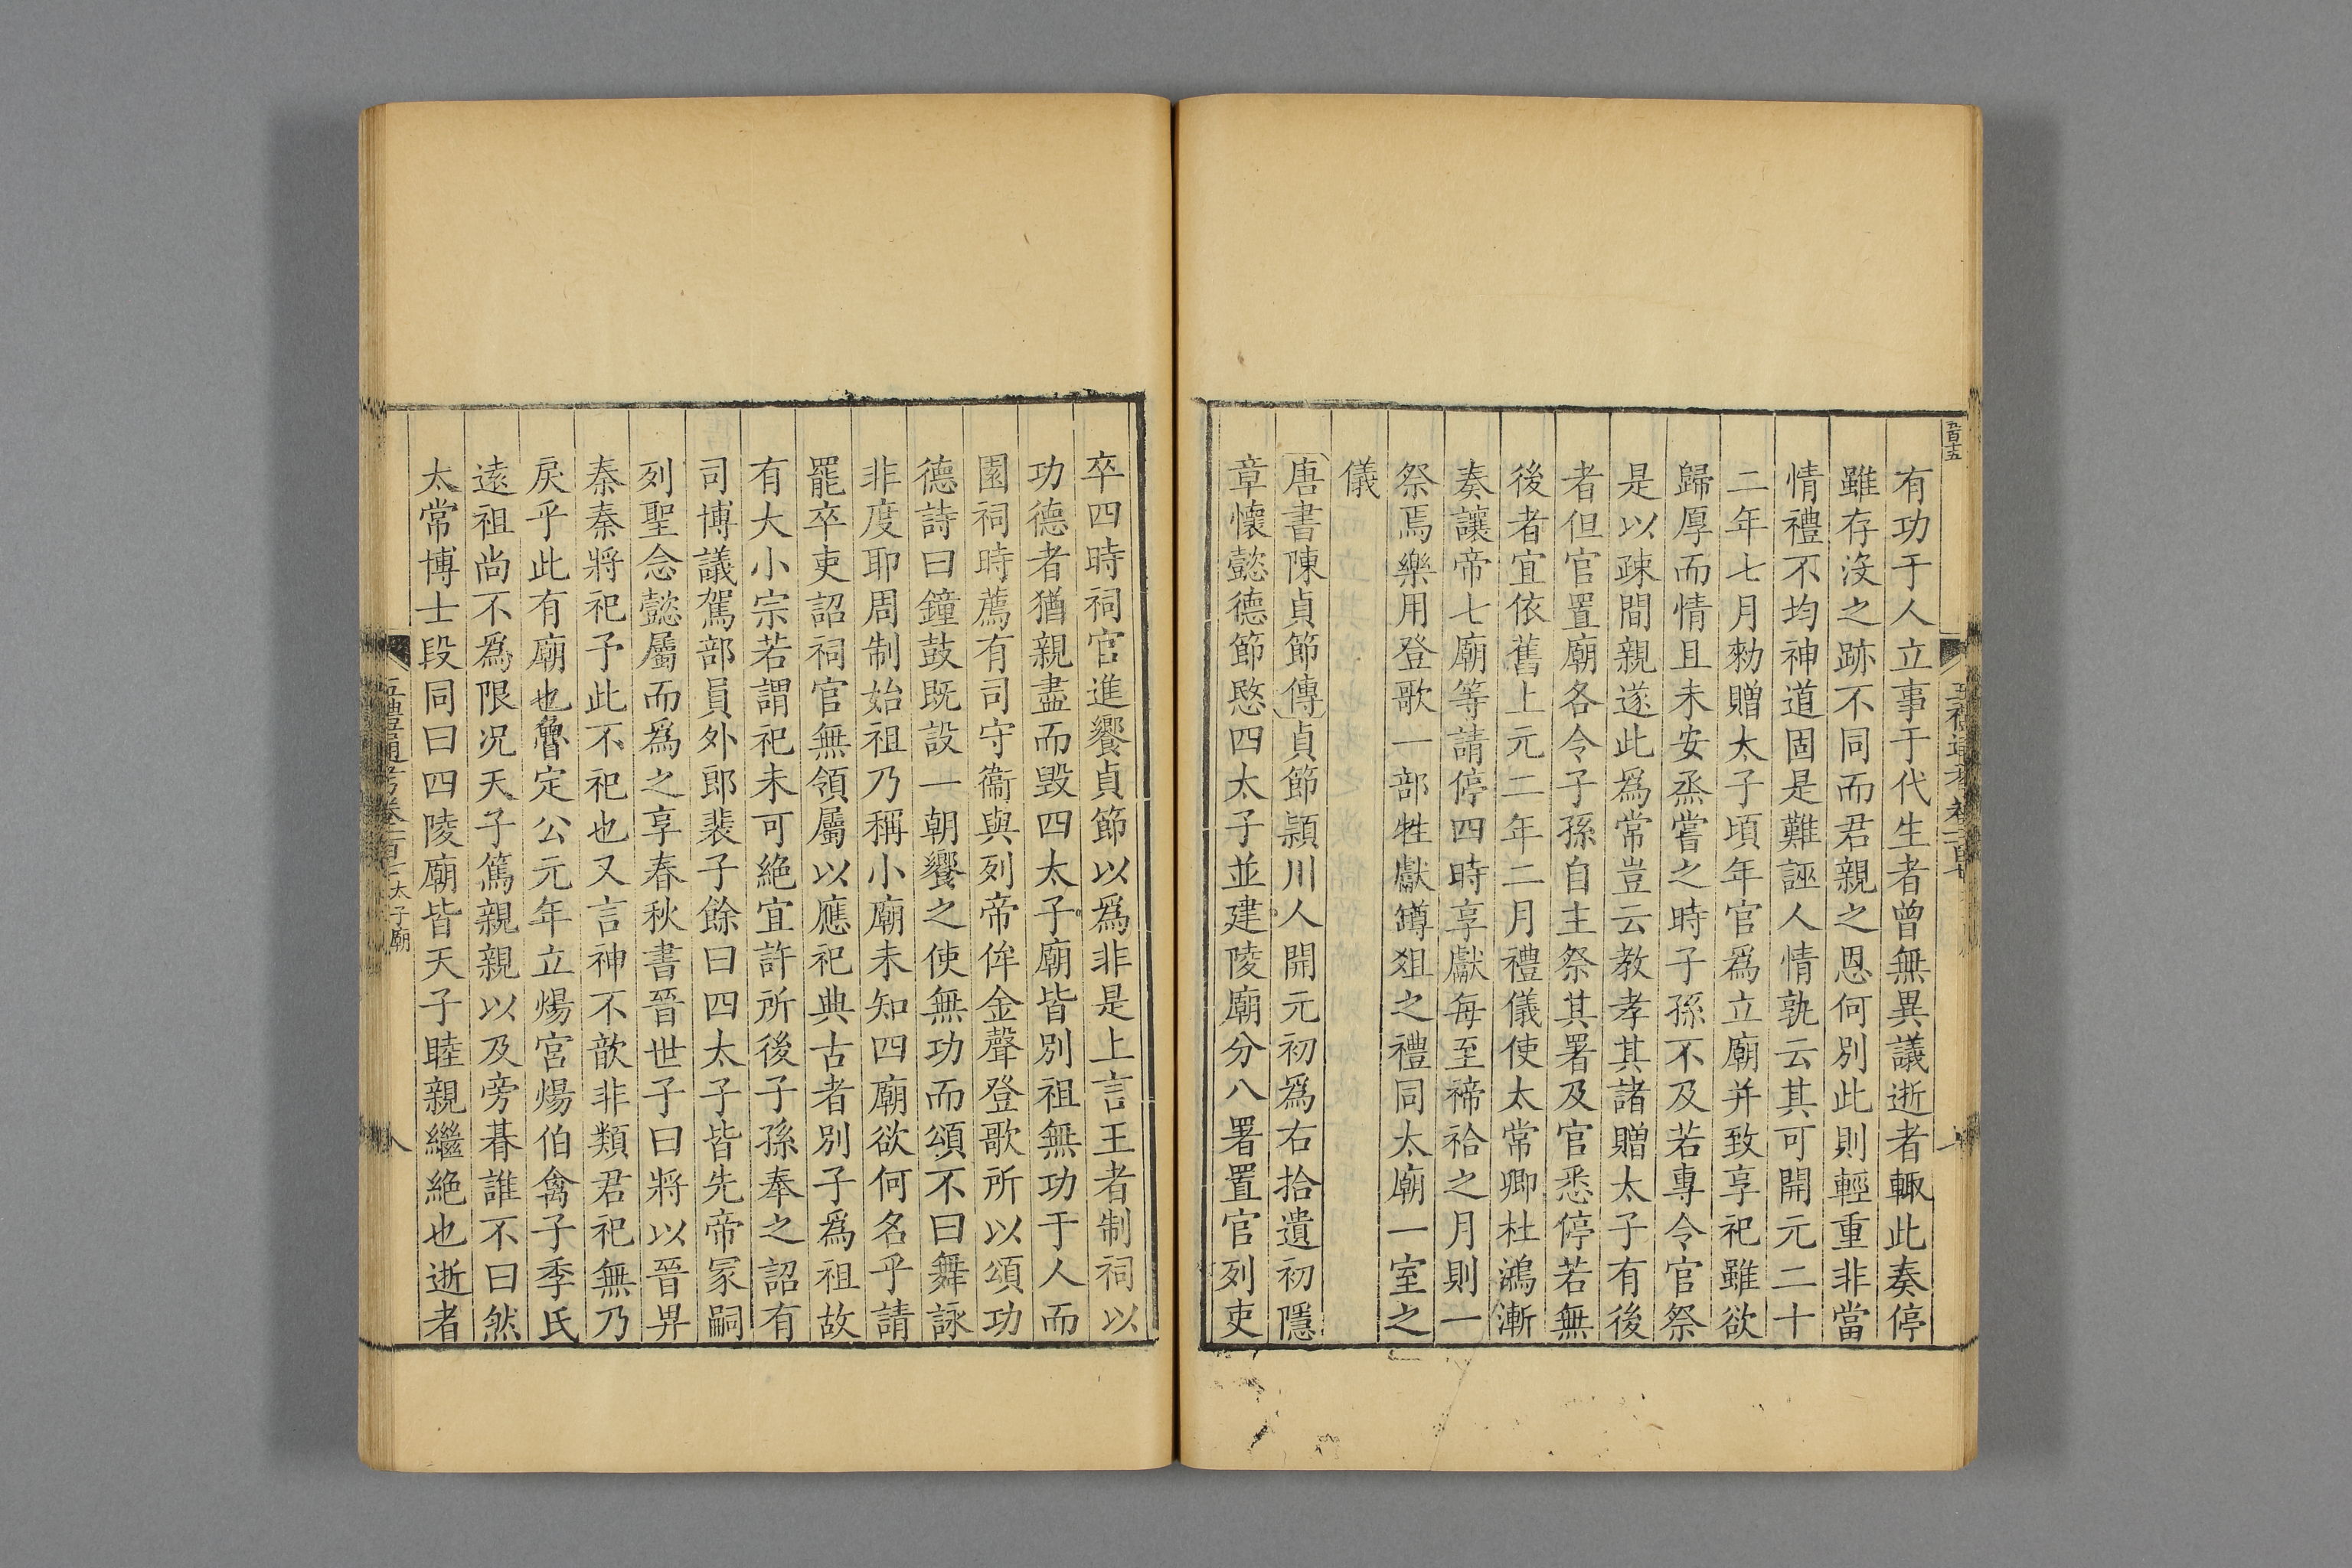 九百十五
有功于人立事于代生者曾無異議逝者輙此奏停
雖存沒之跡不同而君親之恩何別此則輕重非當
情禮不均神道固是難誣人情孰云其可開元二十
二年七月勑贈太子頃年官爲立廟并致享祀雖欲
歸厚而情且未安烝嘗之時子孫不及若專令官祭
是以疎間親遂此爲常豈云教孝其諸贈太子有後
者但官置廟各令子孫自主祭其署及官悉停若無
後者宜依舊上元二年二月禮儀使太常卿杜鴻漸
奏讓帝七廟等請停四時享獻每至禘祫之月則一
祭焉樂用登歌一部牲獻罇俎之禮同太廟一室之
儀
唐書陳貞節傳貞節潁川人開元初爲右拾遺初隱
章懷懿德節愍四太子並建陵廟分八署置官列吏
卒四時祠官進饗貞節以爲非是上言王者制祠以
功德者猶親盡而毀四太子廟皆別祖無功于人而
園祠時薦有司守衞與列帝侔金聲登歌所以頌功
德詩曰鐘鼓既設一朝饗之使無功而頌不曰舞詠
非度耶周制始祖乃稱小廟未知四廟欲何名乎請
罷卒吏詔祠官無領屬以應祀典古者別子爲祖故
有大小宗若謂祀未可絶宜許所後子孫奉之詔有
司博議駕部員外郎裴子餘曰四太子皆先帝冢嗣
列聖念懿屬而爲之享春秋書晉世子曰將以晉畀
秦秦將祀予此不祀也又言神不歆非類君祀無乃
戾乎此有廟也魯定公元年立煬宮煬伯禽子季氏
遠祖尚不爲限况天子篤親親以及旁朞誰不曰然
太常博士段同曰四陵廟皆天子睦親繼絶也逝者
五禮通考卷一百十 太子廟
八